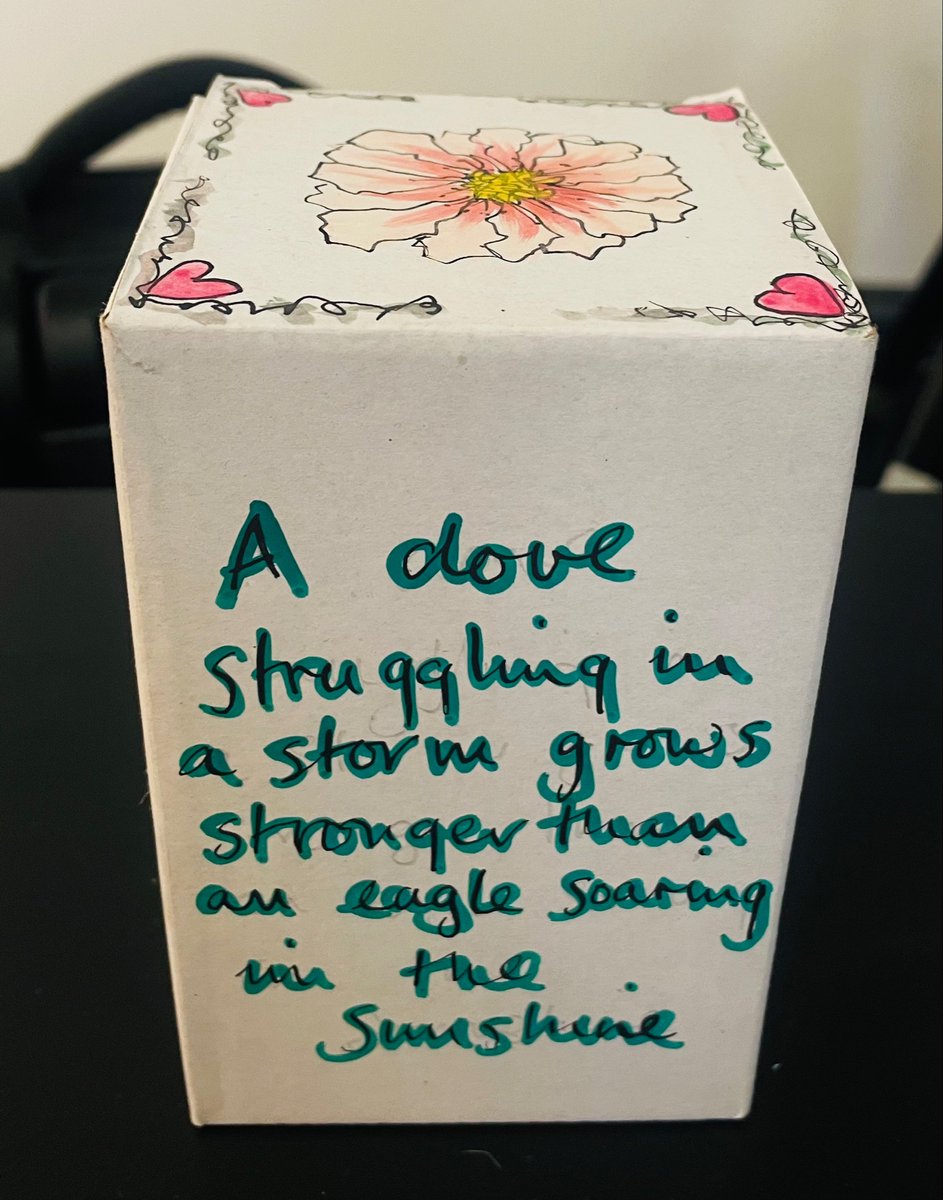 A dove
struggling in
a storm grows
stronger than
an eagle soaring
in the
Sunshine